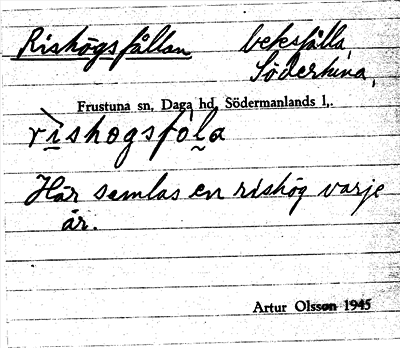 Rishögsfållan beksfälla,
Söderhina,
Frustuna sn, Daga hd, Södermanlands l,.
rishogsfòla
Här samlas en rishög varje
år.
Artur Olsson 1945